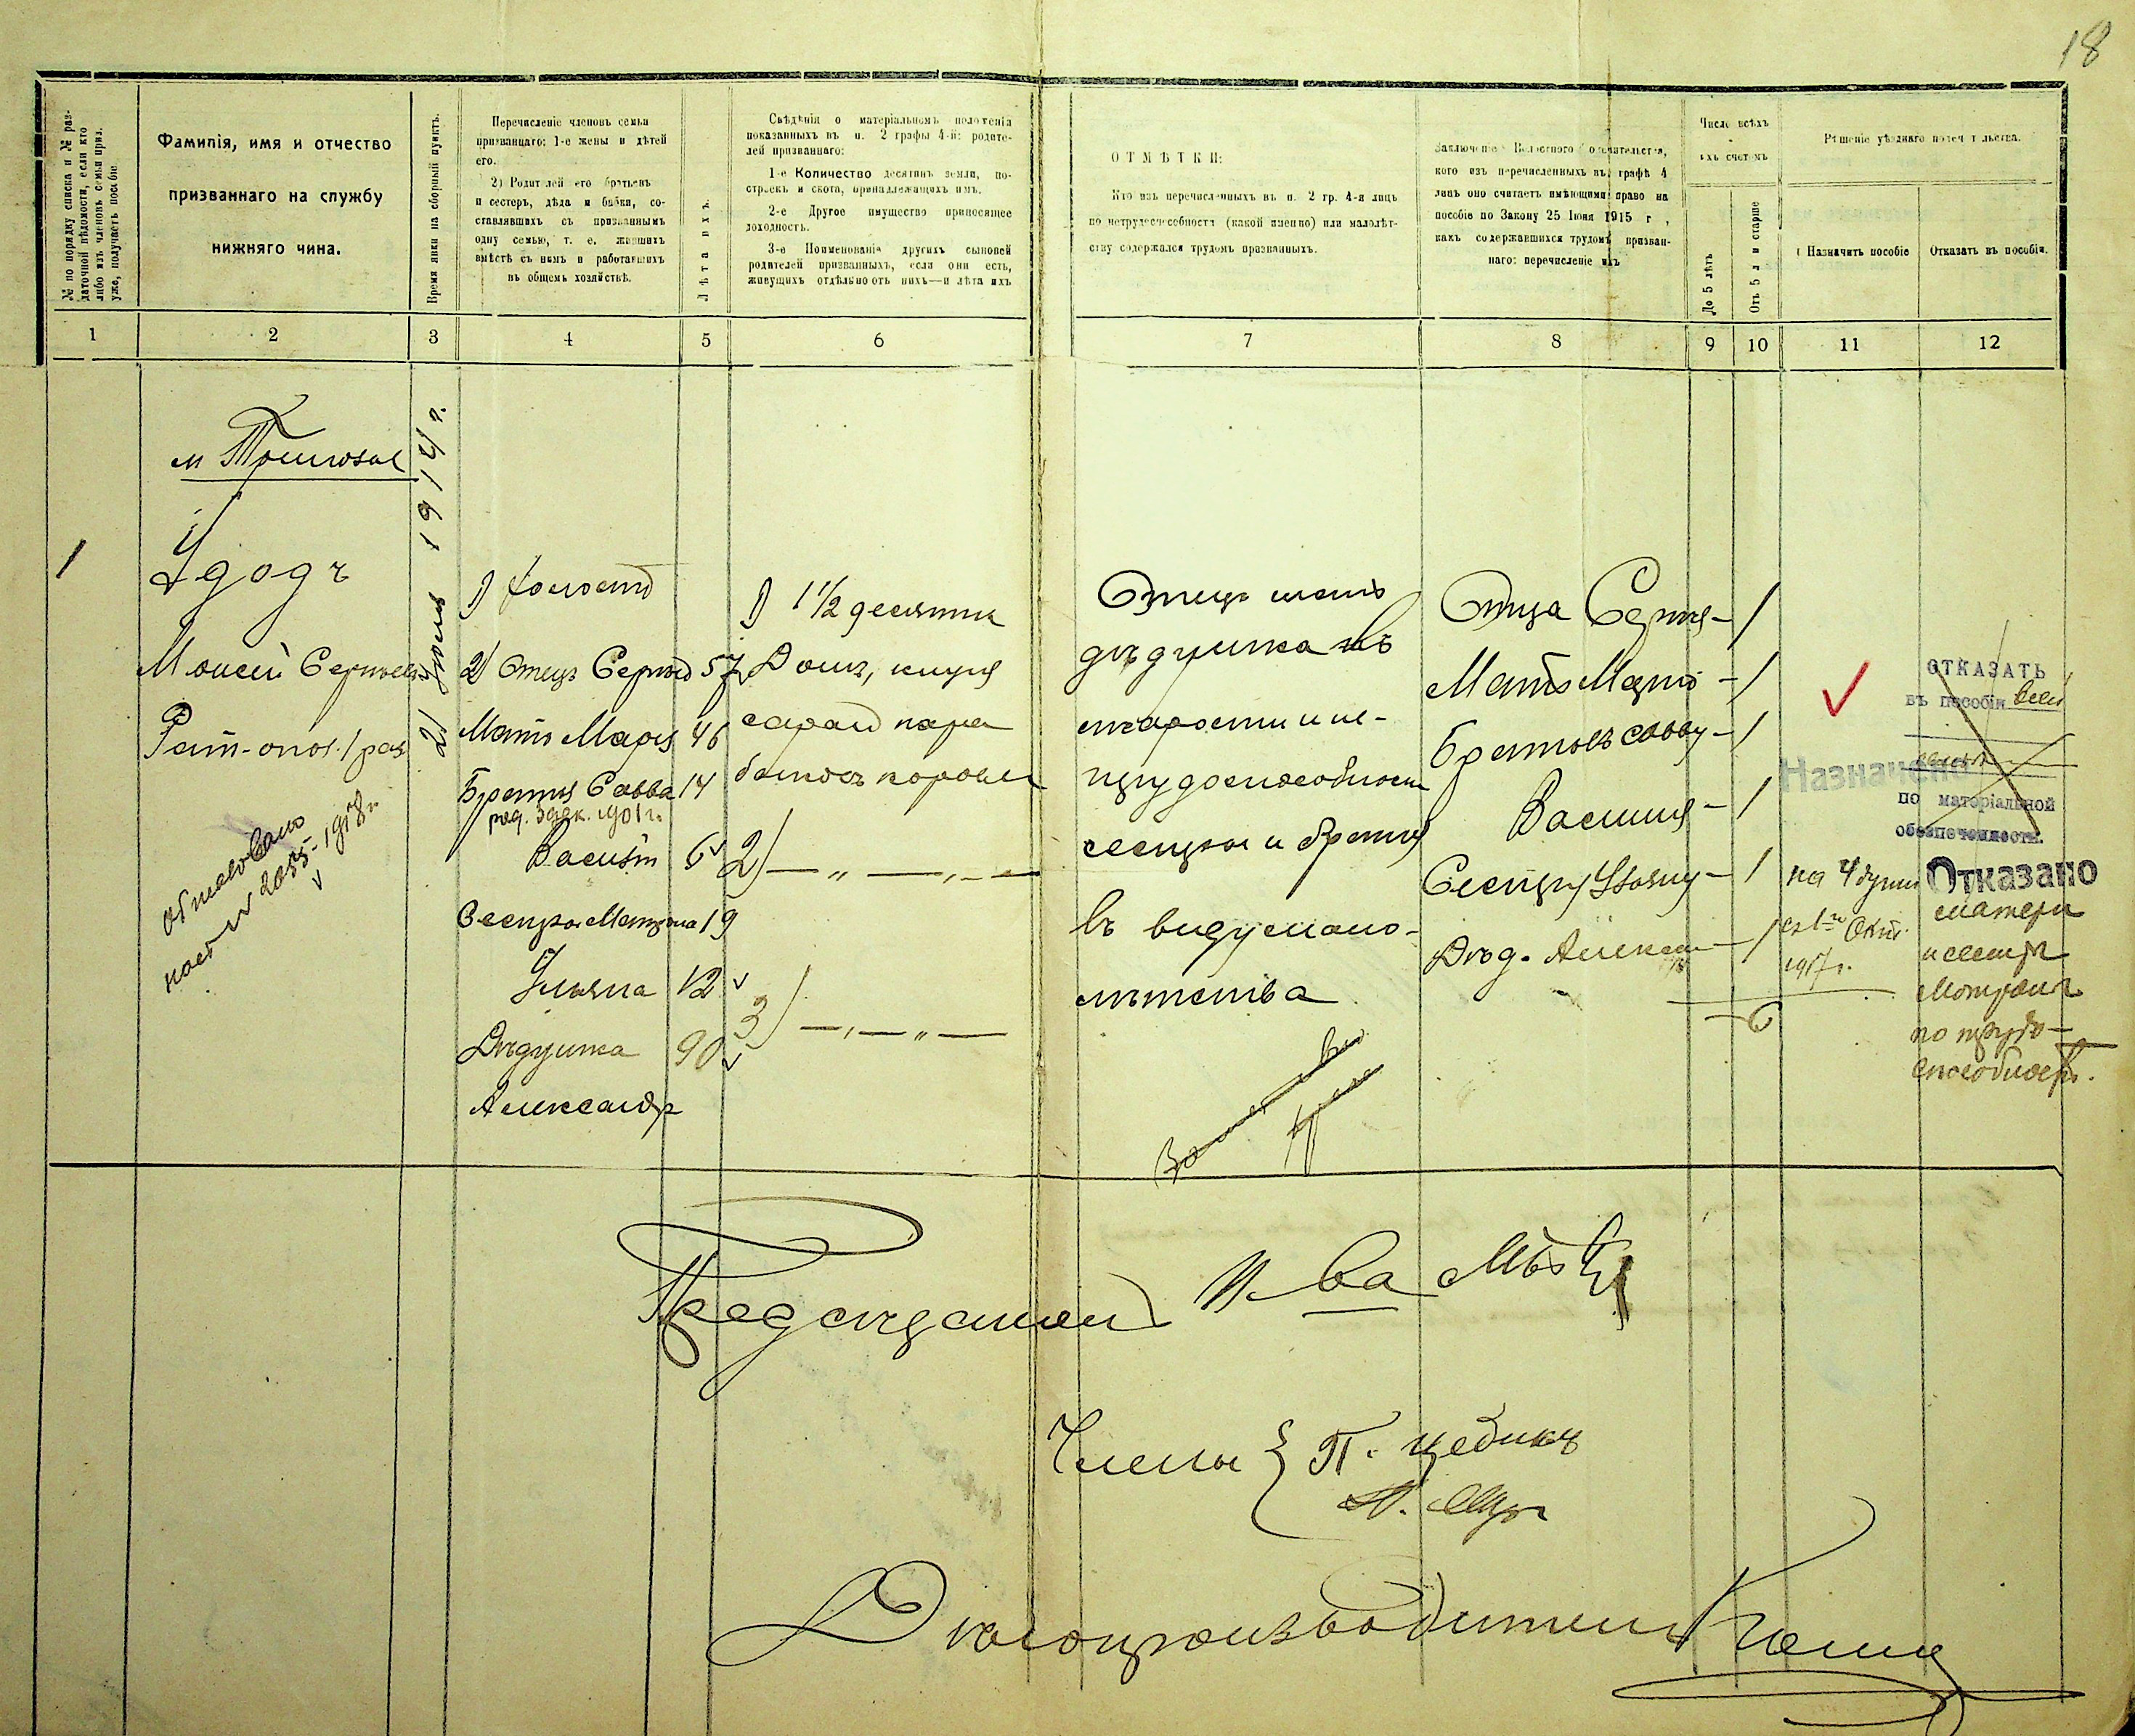 18
№ по порядку списка и № раз-
даточной вѣдомости, если кто
либо изъ членовъ семьи приз.
уже, получаетъ пособіе.
Фамилія, имя и отчество
призваннаго на службу
нижняго чина.
Время явки на сборный пунктъ.
Перечисленіе членовъ семьи
призваннаго: 1-е жены и дѣтей
его.
2) Родителей его братьевъ
и сестеръ, дѣда и бабки, со-
ставлявшихъ съ призваннымъ
одну семью, т. е. жившихъ
вмѣстѣ съ нимъ и работавшихъ
въ общемъ хозяйствѣ.
Лѣта ихъ.
Свѣдѣнія о матеріальномъ положеніи
показанныхъ въ п. 2 графы 4-й: родите-
лей призваннаго:
1-е Количество десятинъ земли, по-
строекъ и скота, принадлежащихъ имъ.
2-е Другое имущество приносящее
доходность.
3-е Поименованіе другихъ сыновей
родителей призванныхъ, если они есть,
живущихъ отдѣльно отъ нихъ—и лѣта ихъ
ОТМѢТКИ:
Кто изъ перечисленныхъ въ п. 2 гр. 4-я лицъ
по нетрудоспособности (какой именно) или малолѣт-
ству содержался трудомъ призванныхъ.
Заключеніе Волостного Попечительства,
кого изъ перечисленныхъ въ графѣ 4
лицъ оно считаетъ имѣющими право на
пособіе по Закону 25 Іюня 1915 г.,
какъ содержавшихся трудомъ призван-
наго: перечисленіе ихъ
Число всѣхъ
ихъ счетомъ
До 5 лѣтъ
Отъ 5 л и старше
Рѣшеніе уѣзднаго попечительства.
Назначить пособіе
Отказать въ пособіи.
1 2 3 4 5 6 7 8 9 10 11 12
21 Іюля 1914 г.
1
Удодъ
Моисей Сергѣевъ
Рат. опол. 1 раз
1) холостъ
2) Отецъ Сергѣй 57
Мать Марія 46
Братья Савва 14
род. 3 дек. 1901 г.
Василій 6
Сестра Матрона 19
Ульяна 12
Дѣдушка 90
Александръ
1) 1 1/2 десятины
Домъ, клуня
сарай пара
быковъ корова
2) — „ — „ —
3) — „ — „ —
Отецъ мать
дѣдушка по
старости и не-
трудоспособности
сестра и братья
въ виду мало-
лѣтства
Отца Сергѣя — 1
Мать Марію — 1
Братьевъ Савву — 1
Василія — 1
Сестру Ульяну — 1
Дѣд. Александ — 1
6
Назначено
на 4 души
съ 1го Окт.
1917 г.
ОТКАЗАТЬ
въ пособіи всей
по матеріальной
обезпеченности.
Отказано
матери
и сестрѣ
Мотронѣ
по трудо-
способности.
Предсѣдатель
Члены { П.
Дѣлопроизводитель